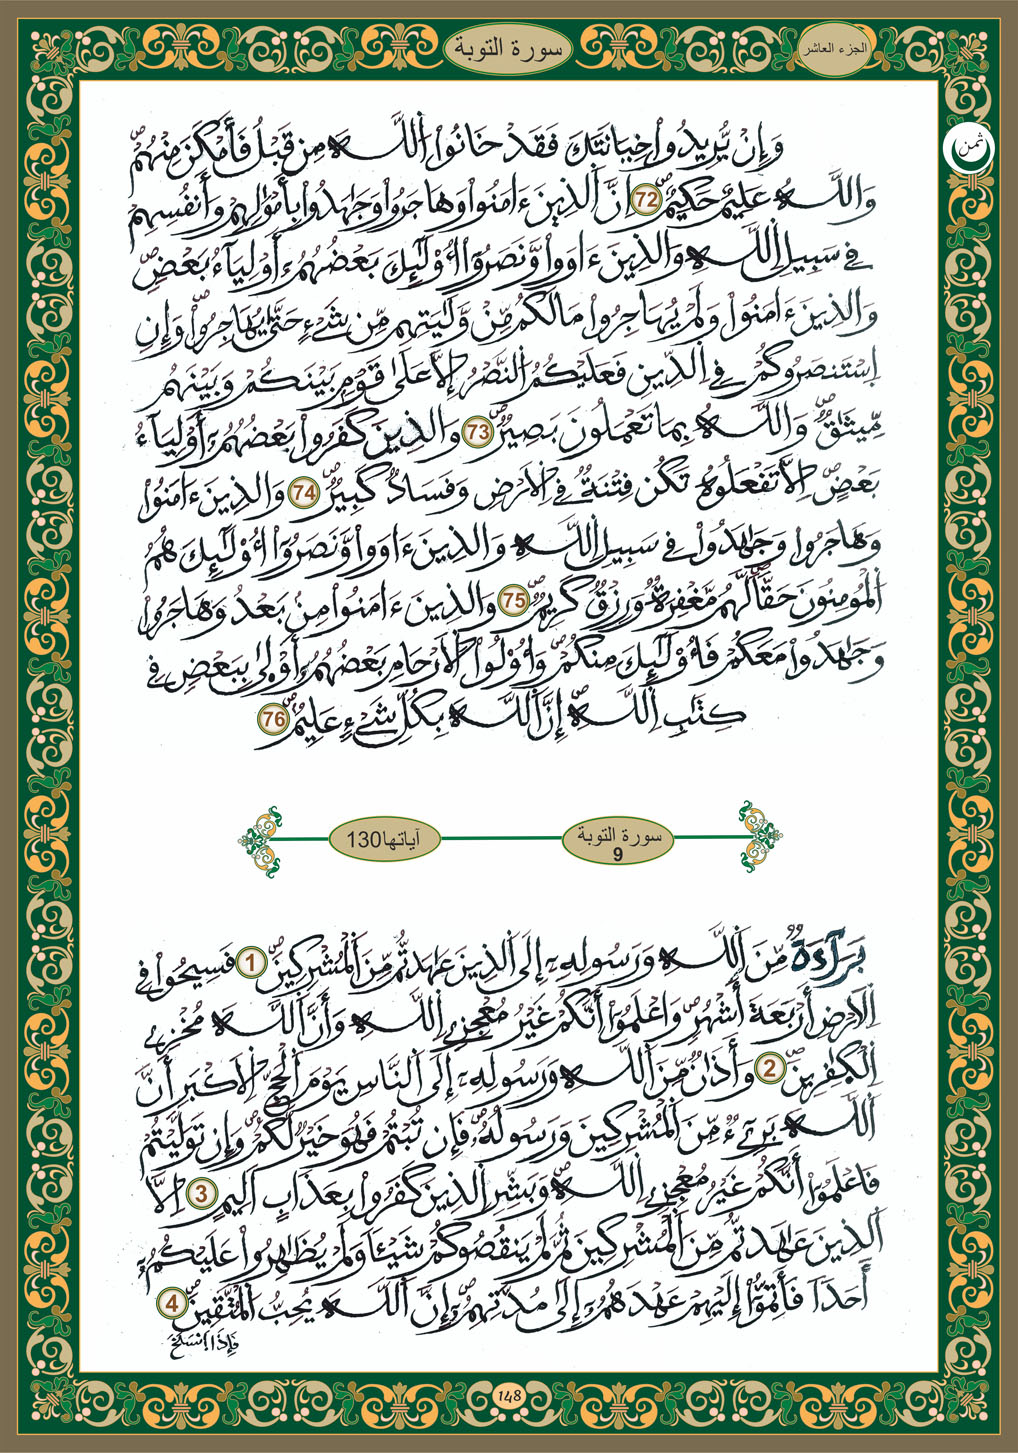 الجزء العاشر
سورة التوبة
ثمن
وَإِنْ يُّرِيدُواْ خِيَانَتَكَ فَقَدْ خَانُواْ اللَّهَ مِن قَبْلُ فَأَمْكَنَ مِنْهُمْ
وَاللَّهُ عَلِيمٌ حَكِيمٌ 72 إِنَّ الَذِينَ ءَامَنُواْ وَهَاجَرُواْ وَجَٰهَدُواْ بِأَمْوَٰلِهِمْ وَأَنفُسِهِمْ
فِي سَبِيلِ اِللَّهِ وَالذِينَ ءَاوَواْ وَّنَصَرُوٓاْ أُوْلَٰٓئِكَ بَعْضُهُمُۥٓ أَوْلِيَآءُ بَعْضٍ
وَالذِينَ ءَامَنُواْ وَلَمْ يُهَاجِرُواْ مَا لَكُم مِّنْ وَّلَٰيَتِهِم مِّن شَےْءٍ حَتَّىٰ يُهَاجِرُواْ وَإِنِ
اِسْتَنصَرُوكُمْ فِي اِلدِّينِ فَعَلَيْكُمُ النَّصْرُ إِلَّا عَلَىٰ قَوْمِۭ بَيْنَكُمْ وَبَيْنَهُم
مِّيثَٰقٌ وَاللَّهُ بِمَا تَعْمَلُونَ بَصِيرٌ 73 وَالذِينَ كَفَرُواْ بَعْضُهُمُۥٓ أَوْلِيَآءُ
بَعْضٍ اِلَّا تَفْعَلُوهُ تَكُن فِتْنَةٌ فِي اِلَارْضِ وَفَسَادٌ كَبِيرٌ 74 وَالذِينَ ءَامَنُواْ
وَهَاجَرُواْ وَجَٰهَدُواْ فِي سَبِيلِ اِللَّهِ وَالذِينَ ءَاوَواْ وَّنَصَرُوٓاْ أُوْلَٰٓئِكَ هُمُ
اُلْمُومِنُونَ حَقّاً لَّهُم مَّغْفِرَةٌ وَرِزْقٌ كَرِيمٌ 75 وَالذِينَ ءَامَنُواْ مِنۢ بَعْدُ وَهَاجَرُواْ
وَجَٰهَدُواْ مَعَكُمْ فَأُوْلَٰٓئِكَ مِنكُمْ وَأُوْلُواْ اُلَارْحَامِ بَعْضُهُمُۥٓ أَوْلَىٰ بِبَعْضٍ فِي
كِتَٰبِ اِللَّهِ إِنَّ اَللَّهَ بِكُلِّ شَےْءٍ عَلِيمٌ 76
سورة التوبة 9
آياتها130
بَرَآءَةٌ مِّنَ اَللَّهِ وَرَسُولِهِۦٓ إِلَى اَلذِينَ عَٰهَدتُّم مِّنَ اَلْمُشْرِكِينَ 1 فَسِيحُواْ فِي
اِلَارْضِ أَرْبَعَةَ أَشْهُرٍ وَاعْلَمُوٓاْ أَنَّكُمْ غَيْرُ مُعْجِزِے اِللَّهِ وَأَنَّ اَللَّهَ مُخْزِے
اِلْكَٰفِرِينَ 2 وَأَذَٰنٌ مِّنَ اَللَّهِ وَرَسُولِهِۦٓ إِلَى اَلنَّاسِ يَوْمَ اَلْحَجِّ اِلَاكْبَرِ أَنَّ
اَللَّهَ بَرِےٓءٌ مِّنَ اَلْمُشْرِكِينَ وَرَسُولُهُۥ فَإِن تُبْتُمْ فَهُوَ خَيْرٌ لَّكُمْ وَإِن تَوَلَّيْتُمْ
فَاعْلَمُوٓاْ أَنَّكُمْ غَيْرُ مُعْجِزِے اِللَّهِ وَبَشِّرِ اِلذِينَ كَفَرُواْ بِعَذَابٍ اَلِيمٍ 3 اِلَّا
اَلذِينَ عَٰهَدتُّم مِّنَ اَلْمُشْرِكِينَ ثُمَّ لَمْ يَنقُصُوكُمْ شَيْـٔاً وَلَمْ يُظَٰهِرُواْ عَلَيْكُمُۥٓ
أَحَداً فَأَتِمُّوٓاْ إِلَيْهِمْ عَهْدَهُمُۥٓ إِلَىٰ مُدَّتِهِمُۥٓ إِنَّ اَللَّهَ يُحِبُّ اُلْمُتَّقِينَ 4
فَإِذَا اَنسَلَخَ
148